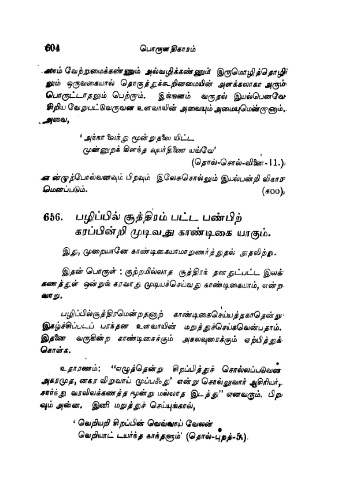 604 பொருளதிகாரம்
னாம் வேற்றுமைக்கண்ணும் அல்வழிக்கண்ணும் இருமொழித்தொழி
லும் ஒருவகையால் தொகுத்துக்கூறினமையின் அளக்கலாகா அரும்
பொருட்டாதலும் பெற்றும். இன்னணம் வருதல் இயல்பெனவே
சிறிய வேறுபட்டுவருவன உளவாயின் அவையும் அமையுமென்றுணும்,
அவை,
முன்னுறக் கிளந்த உயர்திணை யவ்வே'
(தொல்-சொல்-வினை-11.)
என்றாற்போல்வனவும் பிறவும் இலேசுசொல்லும் இயல்பன்றி விகார
மெனப்படும். (௧௦௦),
656. பழிப்பில் சூத்திரம் பட்ட பண்பிற்
கரப்பின்றி முடிவது காண்டிகை யாகும்.
இது, முறையானே காண்டிகையாமாறுணர்த்துதல் நுதலிற்று.
இதன் பொருள் : குற்றமில்லாத சூத்திரந் தனதுட்பட்ட இலக்
கணத்துள் ஒன்றுங் கரவாது முடியச்செய்வது காண்டிகையாம், என்ற
வாறு.
பழிப்பில்சூத்திரமென்றதனாற் காண்டிகைசெய்யத்தகாதென்று
இகழ்ச்சிப்படப் பரந்தன உளவாயின் மறுத்துச்செய்கவென்பதாம்.
இதனை வருகின்ற காண்டிகைக்கும் அகலவுரைக்கும் ஏற்பித்துக்
கொள்க.
உதாரணம்: “எழுத்தென்று சிறப்பித்துச் சொல்லப்படுவன
அகரமுத, னகர விறுவாய் முப்பஃது' என்று சொல்லுவார் ஆசிரியர்,
சார்ந்து வரலிலக்கணத்த மூன்று மல்லாத இடத்து” எனவரும். பிற
வும் அன்ன, இனி மறுத்துச் செய்யுங்கால்,
' வெறியறி சிறப்பின் வெவ்வாய் வேலன்
வெறியாட் டயர்ந்த காந்தளும்' (தொல்-புறத்-5).